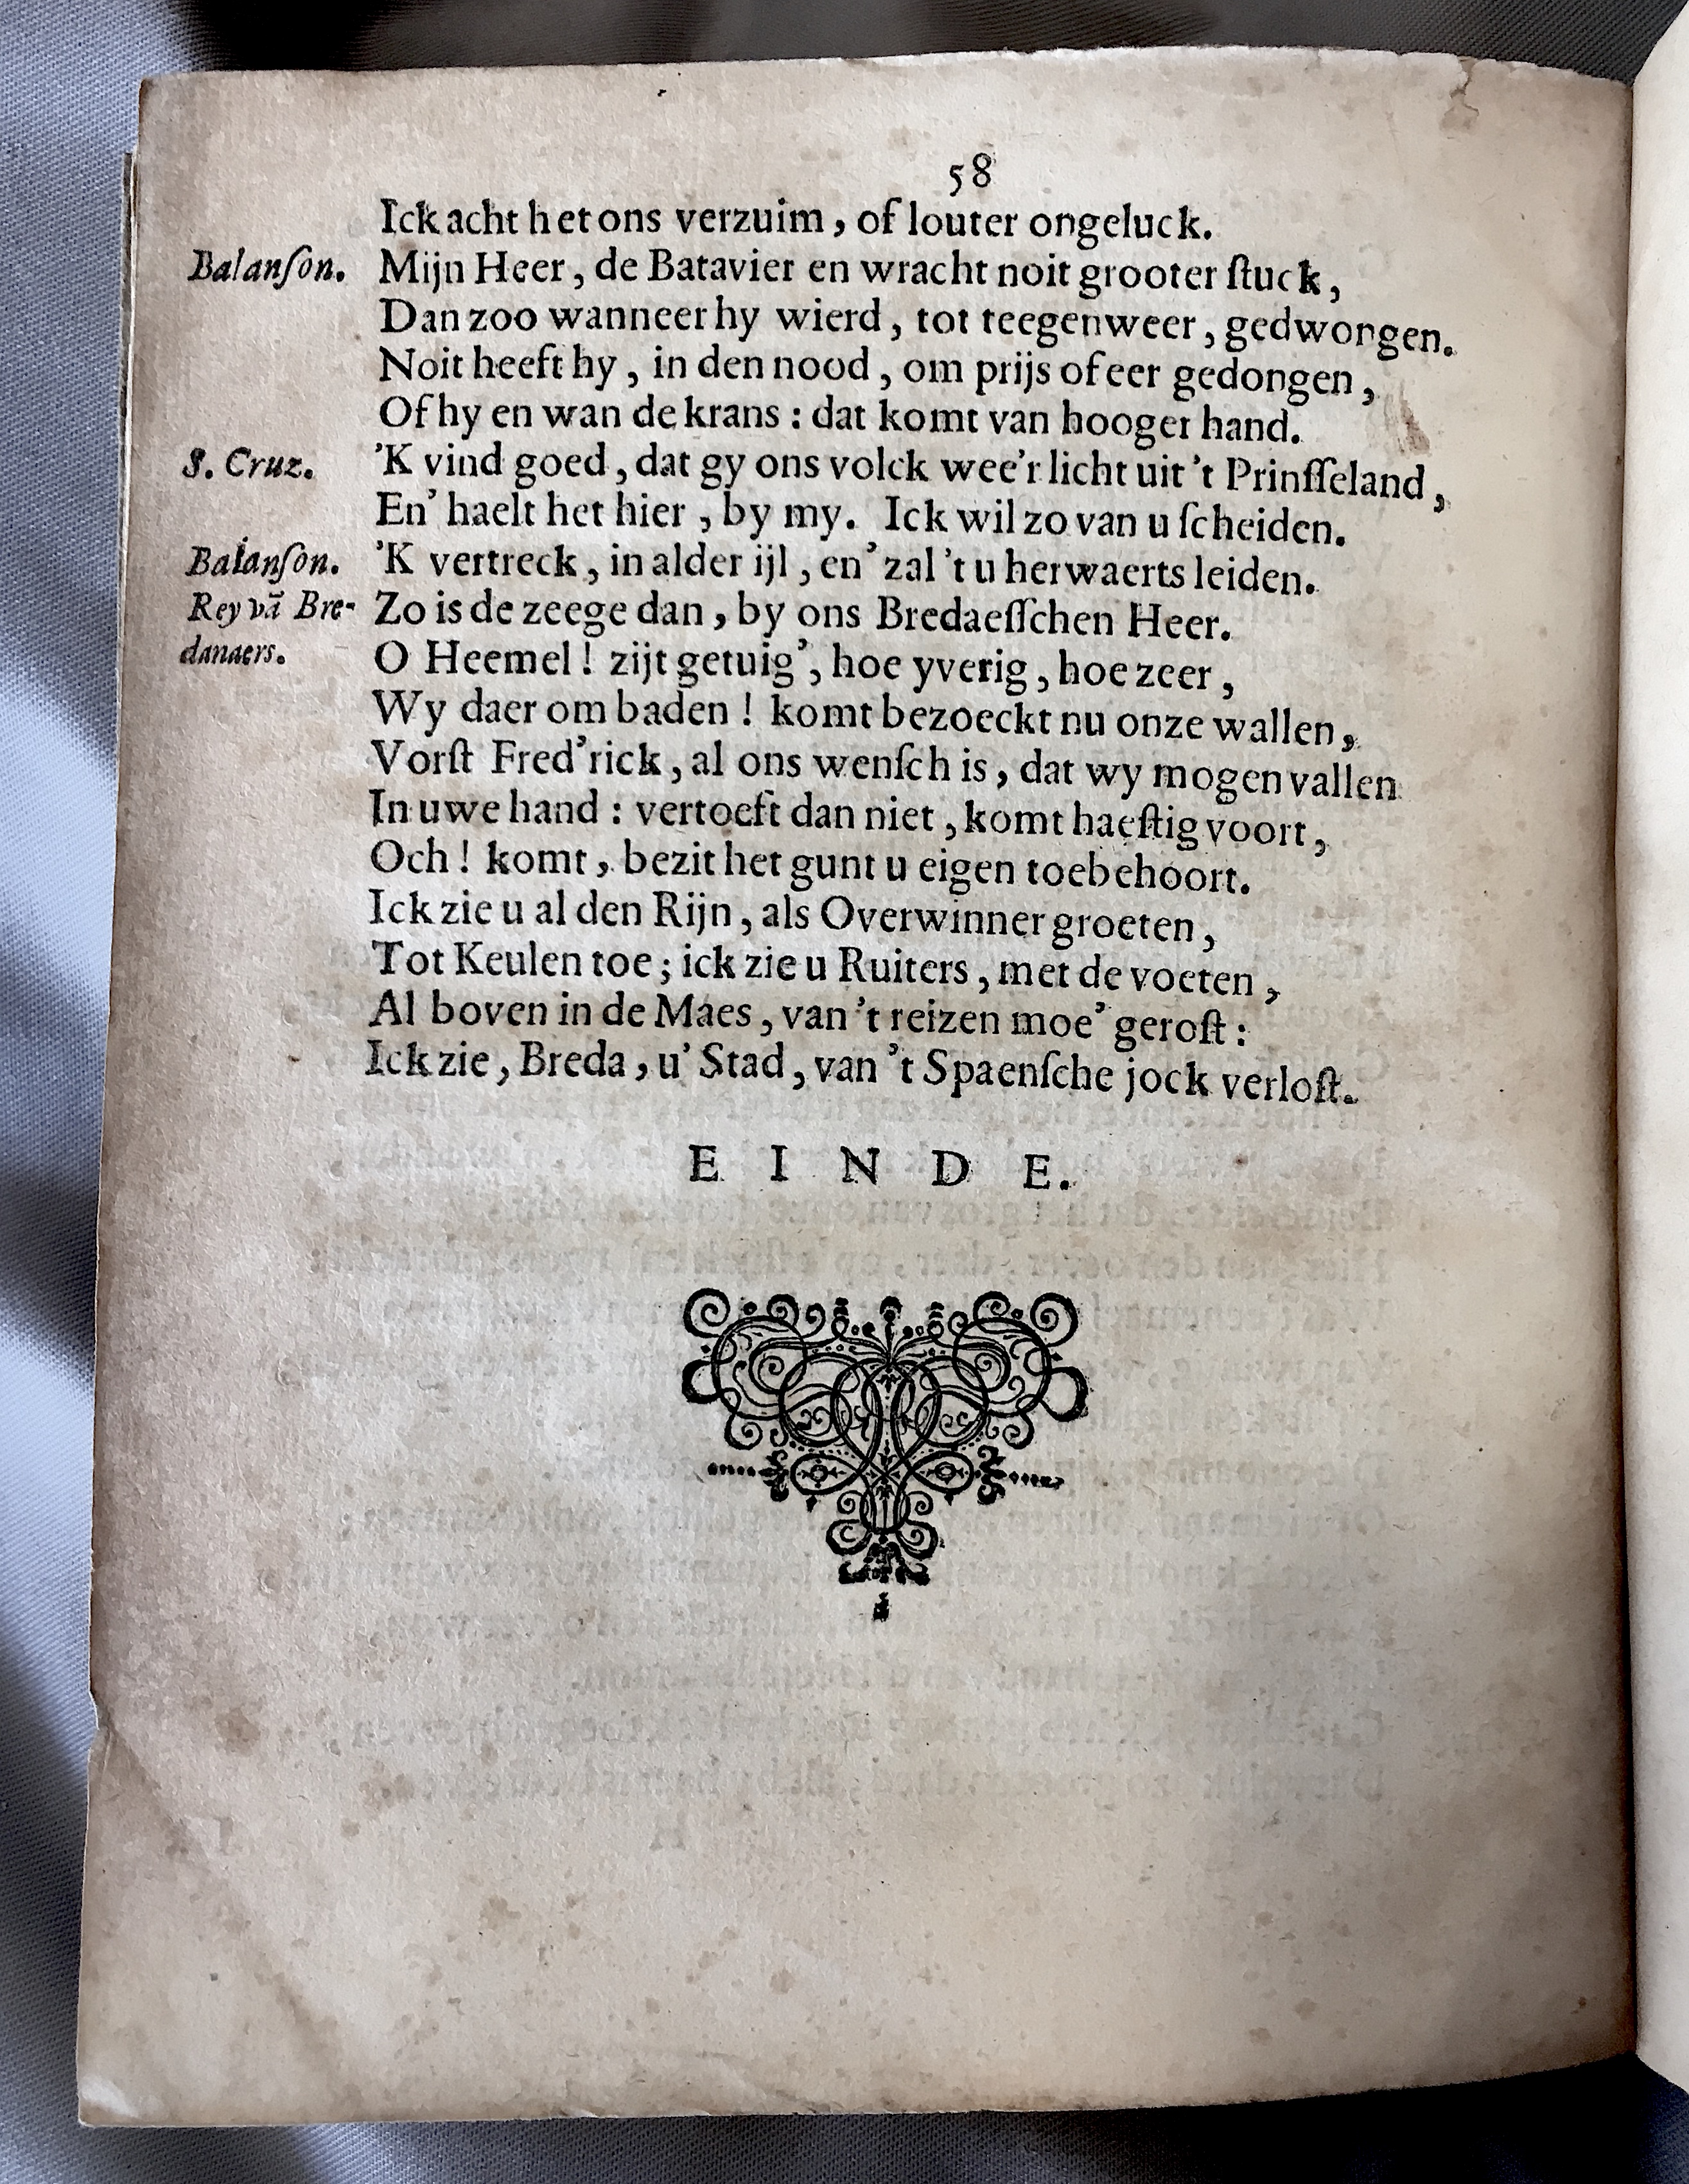 58
Ick acht het ons verzuim, of louter ongeluck.
Balanſon. Mijn Heer, de Batavier en wracht noit grooter ſtuck,
Dan zoo wanneer hy wierd, tot teegenweer, gedwongen.
Noit heeft hy, in den nood, om prijs of eer gedongen,
Of hy en wan de krans: dat komt van hooger hand.
S. Cruz. ’K vind goed, dat gy ons volck wee’r licht uit ’t Prinſſeland,
En’ haelt het hier, by my. Ick wil zo van u ſcheiden.
Balanſon. ’K vertreck, in alder ijl, en’ zal ’t u herwaerts leiden.
Rey vā Bre- Zo is de zeege dan, by ons Bredaeſſchen Heer.
danaers. O Heemel! zijt getuig’, hoe yverig, hoe zeer,
Wy daer om baden! komt bezoeckt nu onze wallen,
Vorſt Fred’rick, al ons wenſch is, dat wy mogen vallen
In uwe hand: vertoeft dan niet, komt haeſtig voort,
Och! komt, bezit het gunt u eigen toebehoort.
Ick zie u al den Rijn, als Overwinner groeten,
Tot Keulen toe; ick zie u Ruiters, met de voeten,
Al boven in de Maes, van ’t reizen moe’ geroſt:
Ick zie, Breda, u’ Stad, van ’t Spaenſche jock verloſt.
E I N D E.